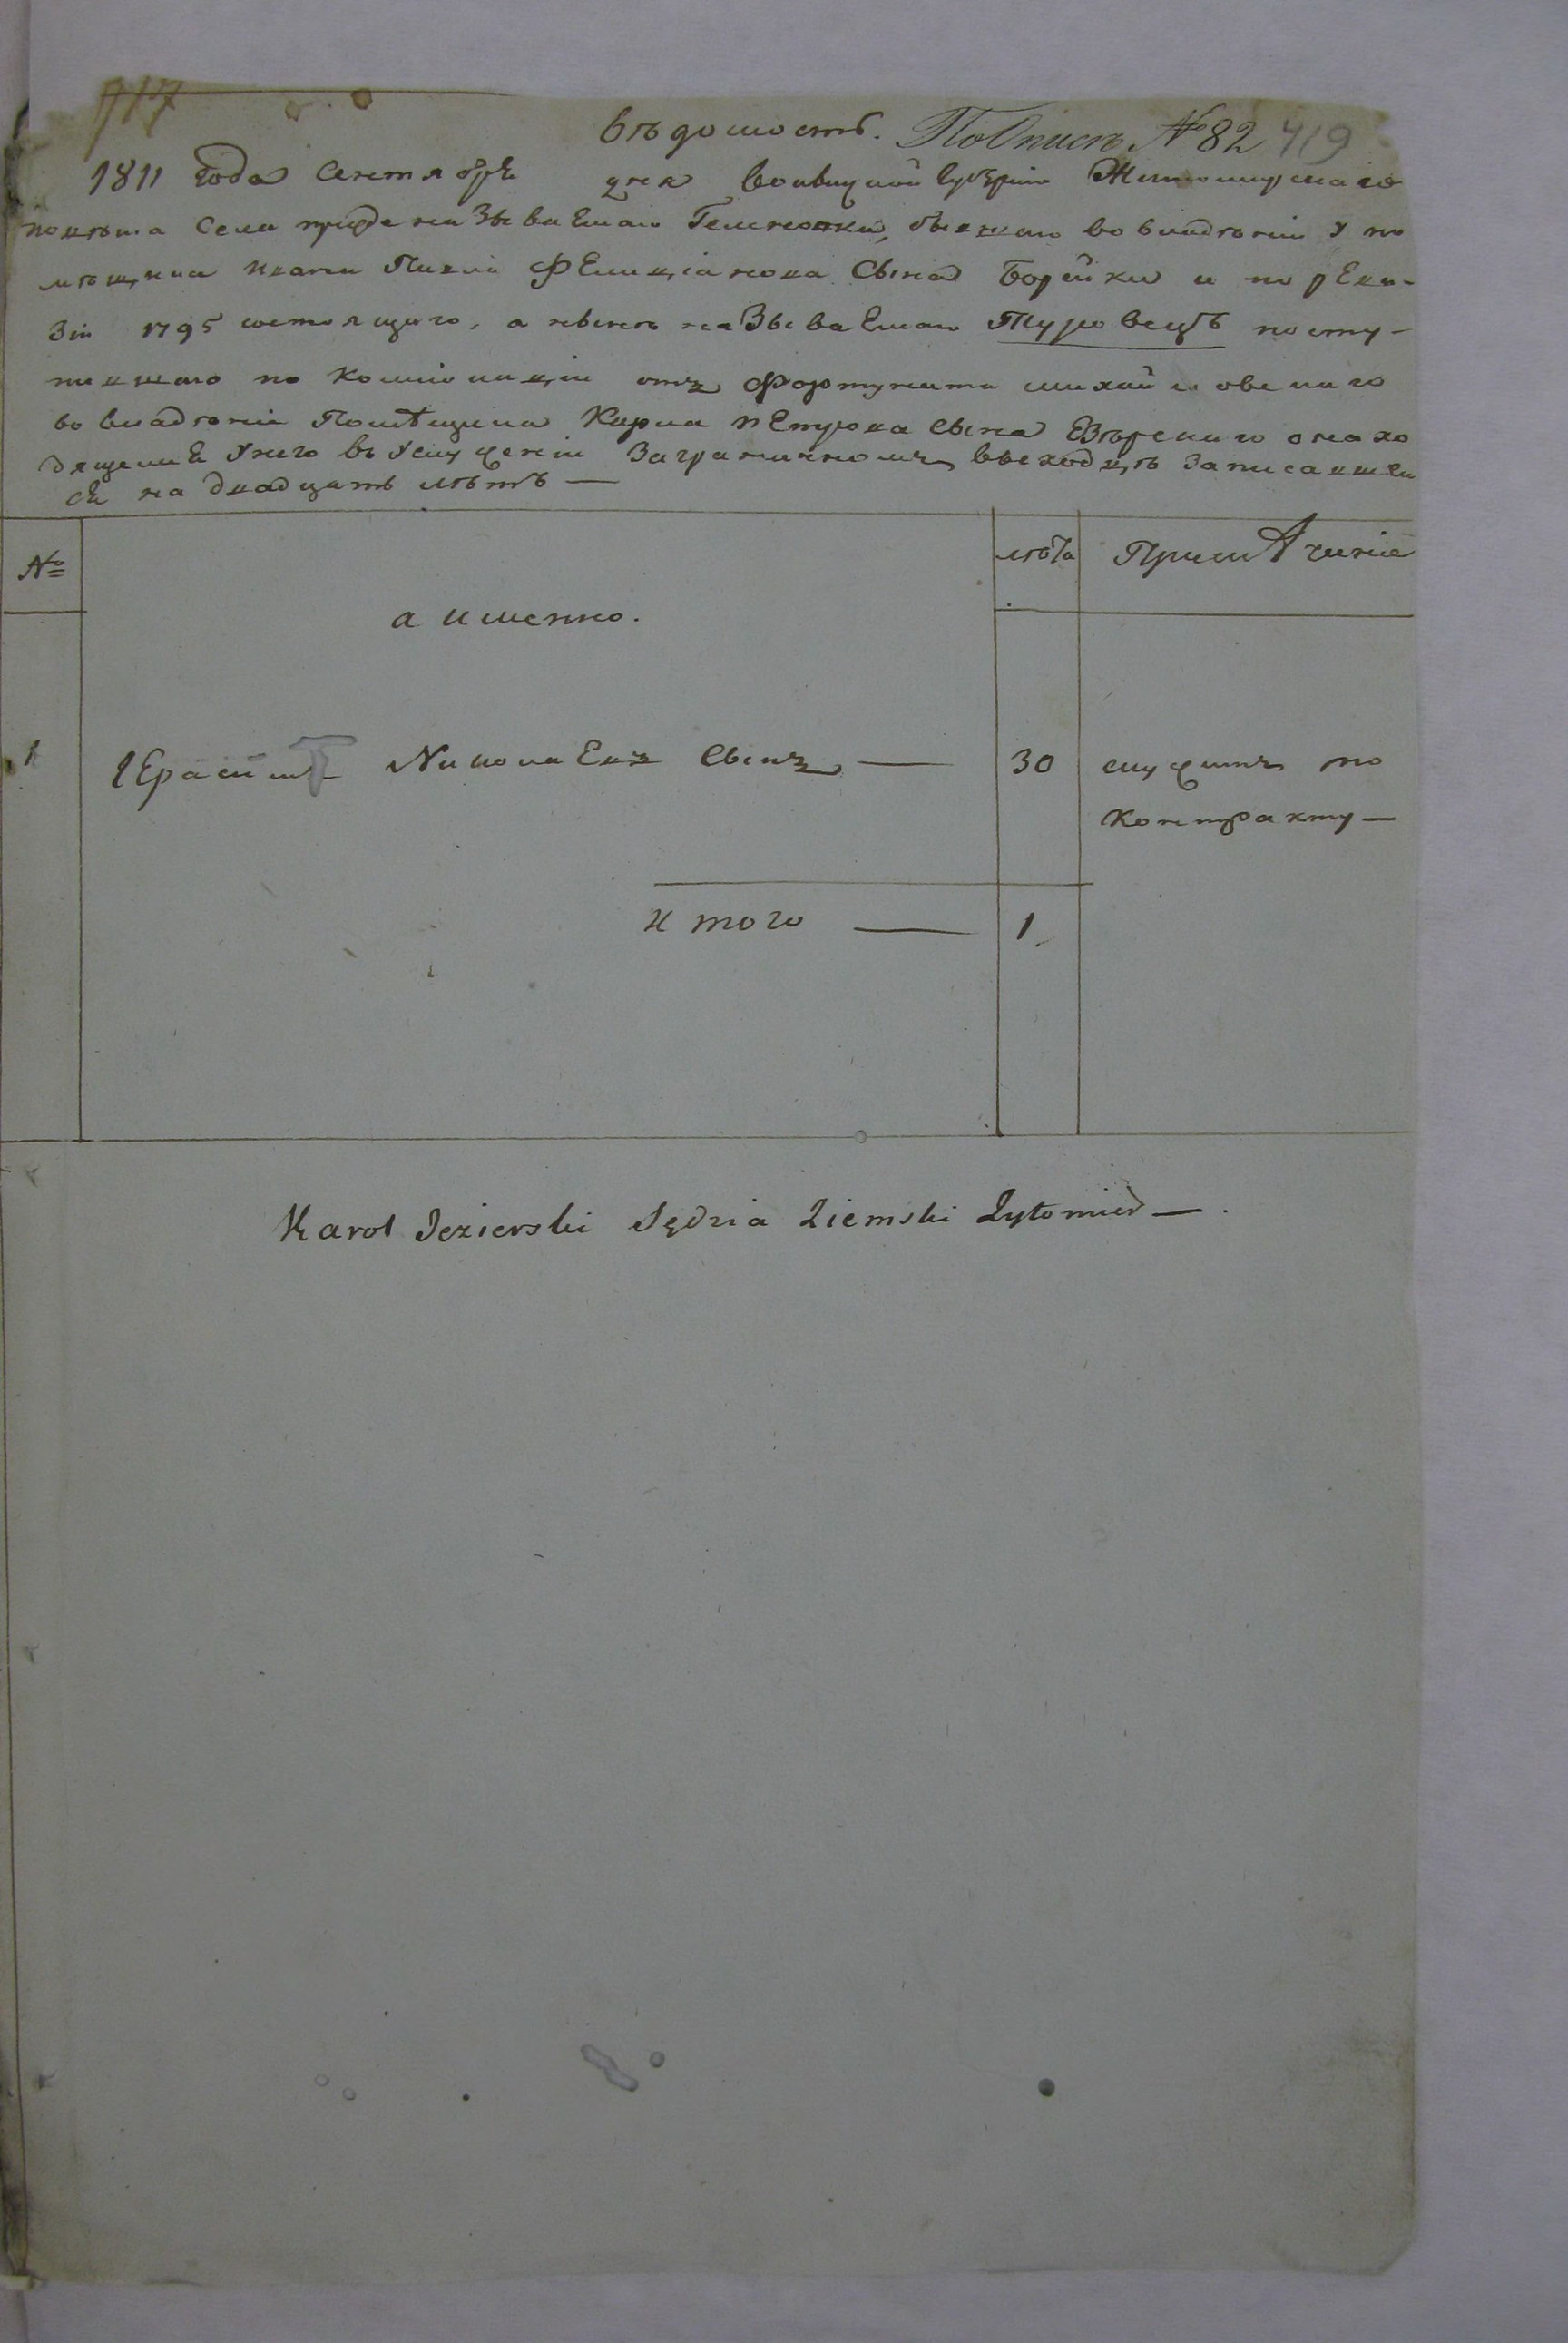 717
вѣдомость. Подпись №82 419
1811 года сентября дня волынской губерніи Житомирскаго
повѣта села прежде называемаго Гемковки, бывшаго во владѣніи у по
мѣщика пана Павла Фелиціянова сына Борейки и по реви-
зіи 1795 состоящаго, а нынѣ называемаго Туровецъ посту-
пившаго по комплонаціи отъ Фортуната михайловскаго
во владѣніе Помѣщика Карла петрова сына Езѣрскаго о нахо
дящемся у него въ услуженіи заграничномъ выходцѣ записавшем
ся на двадцать лѣтъ —
№ лѣта Примѣчаніе
а именно.
1 Герасимъ Николаевъ сынъ — 30 служитъ по
контракту —
и того — 1.
Karol Jezierski Sędzia Ziemski Żytomier — .